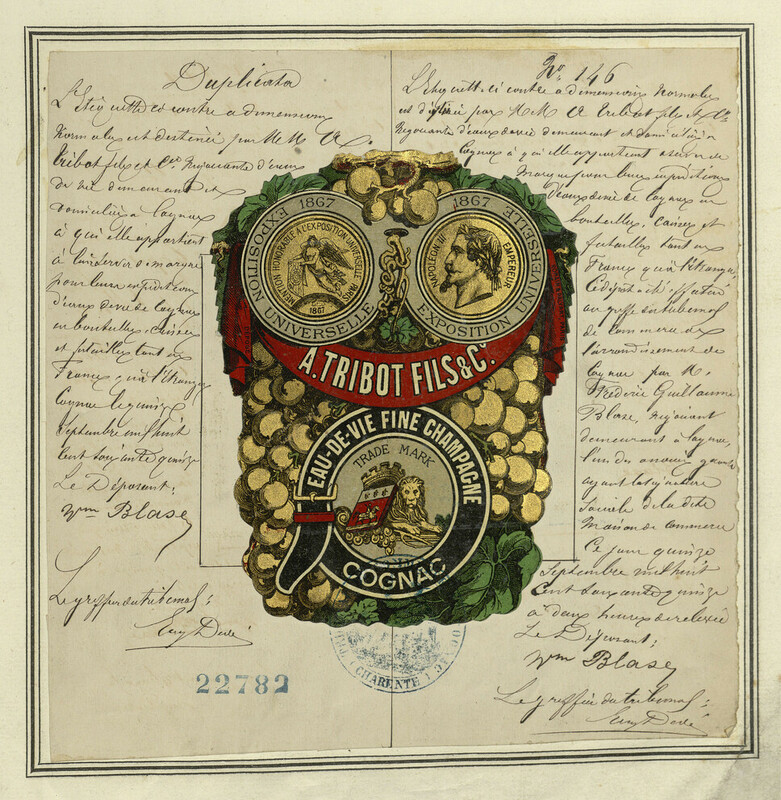 Duplicata
L'Etiquette ci contre a dimension
Normales est destinée par MM A.
Tribot fils et Cie Négociants d'eaux
de vie demeurant et
domiciliés à Cognac
à qui elle appartient
à leur servir de marque
pour leurs expéditions
d'eaux de vie de Cognac
en bouteilles, caisses
et futailles tant en
France qu'à l'étranger
Cognac le quinze
Septembre mil huit
Cent soixante quinze
Le Déposant;
Wm Blase
Le greffier du tribunal;
22782
No 146
L'Etiquette ci contre a dimensions Normales
est destinée par MM A Tribot fils et Cie
Négociants d'eaux de vie demeurant et domiciliés à
Cognac à qui elle appartient à servir de
Marque pour leurs expéditions
d'eaux de vie de Cognac en
bouteilles, caisses et
futailles tant en
France qu'à l'étranger
Le dépôt a été effectué
au greffe du tribunal
de Commerce de
l'arrondissement de
Cognac par M.
Frédéric Guillaume
Blase, Négociant
demeurant à Cognac,
l'un des
ayant la signature
Sociale de la dite
Maison de Commerce
Ce jour quinze
Septembre mil huit
Cent soixante quinze
à deux heures de relevée
Le Déposant;
Wm Blase
Le greffier du tribunal;
EXPOSITION UNIVERSELLE
1867
MENTION HONORABLE A L'EXPOSITION UNIVERSELLE PARIS
1867
1867
EXPOSITION UNIVERSELLE
NAPOLEON III EMPEREUR
A. TRIBOT FILS & Cº.
EAU-DE-VIE FINE CHAMPAGNE
TRADE MARK
COGNAC
(CHARENTE)